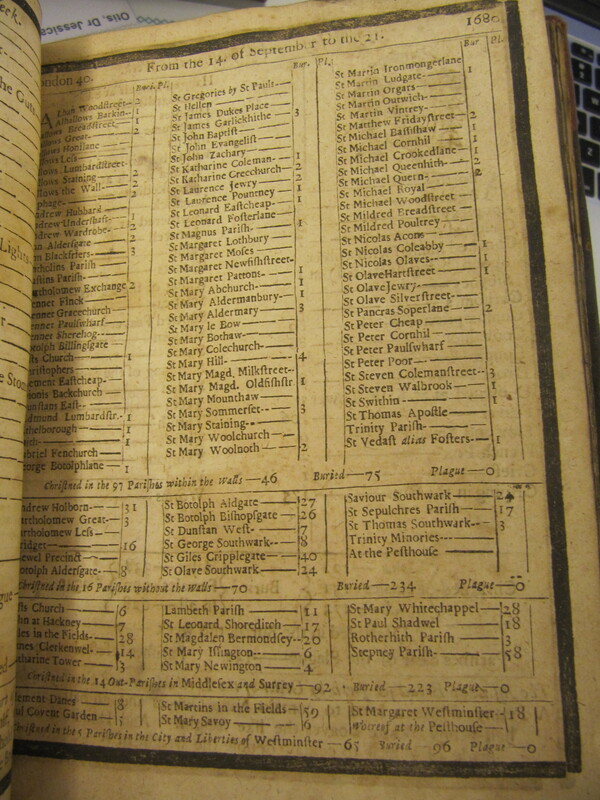 eck.
the Gutt
Lights
e Stom
gue
Otis, Dr Jessica
1680
ondon 40.
From the 14. of September to the 21.
Buri. Pl.
Lban Woodſtreet-- 2
Alhallows Barkin- 1
llows Breadſtreet- 1
llows Great-
Honilane
Leſs
lows Lumbardſtreet-
lows Staining 2
llows the Wall- 2
phage
drew Hubbard 1
drew Underſhaft- 2
drew Wardrobe- 2
n Alderſgate 2
n Blackfriers 3
tholins Pariſh
aſtins Pariſh
tholomew Exchange 2
ennet Finck
ennet Gracechurch
ennet Paulſwharf
ennet Sherehog
otolph Billingſgate
ſts Church 1
riſtophers
ement Eaſtcheap
ionis Backchurch
onſtans Eaſt
dmund Lumbardſtr.- 1
thelborough 1
aith 1
abriel Fenchurch
eorge Botolphlane 1
Bur. Pl.
St Gregories by St Pauls
St Hellen
St James Dukes Place
St James Garlickhithe 3
St John Baptiſt
St John Evangeliſt
St John Zachary
St Katharine Coleman- 1
St Katharine Creechurch 2
St Laurence Jewry 2
St Laurence Pountney 1
St Leonard Eaſtcheap
St Leonard Foſterlane
St Magnus Pariſh 1
St Margaret Lothbury
St Margaret Moſes
St Margaret Newfiſhſtreet
St Margaret Pattons 1
St Mary Abchurch 1
St Mary Aldermanbury 1
St Mary Aldermary 3
St Mary le Bow
St Mary Bothaw
St Mary Colechurch
St Mary Hill 4
St Mary Magd. Milkſtreet
St Mary Magd. Oldfiſhſtr 1
St Mary Mounthaw
St Mary Sommerſet 3
St Mary Staining
St Mary Woolchurch
St Mary Woolnoth 2
Bur. Pl.
St Martin Ironmongerlane 1
St Martin Ludgate
St Martin Orgars
St Martin Outwich
St Martin Vintrey
St Matthew Fridayſtreet 2
St Michael Baſſiſhaw 1
St Michael Cornhil 1
St Michael Crookedlane 1
St Michael Queenhith 2
St Michael Quern 2
St Michael Royal
St Michael Woodſtreet
St Mildred Breadſtreet
St Mildred Poultrey
St Nicolas Acons
St Nicolas Coleabby 1
St Nicolas Olaves 1
St Olave Hartſtreet 1
St Olave Jewry
St Olave Silverſtreet
St Pancras Soperlane 2
St Peter Cheap
St Peter Cornhil
St Peter Paulſwharf
St Peter Poor
St Steven Colemanſtreet 3
St Steven Walbrook 1
St Swithin 1
St Thomas Apoſtle
Trinity Pariſh
St Vedaſt alias Foſters 1
Chriſtned in the 97 Pariſhes within the Walls — 46 Buried — 75 Plague — 0
ndrew Holborn 31
artholomew Great 3
artholomew Leſs
ridget 16
ewel Precinct
otolph Alderſgate 8
St Botolph Aldgate 27
St Botolph Biſhopſgate 26
St Dunſtan Weſt 7
St George Southwark 8
St Giles Cripplegate 40
St Olave Southwark 24
Saviour Southwark
St Sepulchres Pariſh 17
St Thomas Southwark 3
Trinity Minories
At the Peſthouſe
Chriſtned in the 16 Pariſhes without the Walls — 70 Buried — 234 Plague — 0
ſts Church 6
hn at Hackney 7
les in the Fields 28
mes Clerkenwel 14
tharine Tower 3
Lambeth Pariſh 11
St Leonard Shoreditch 17
St Magdalen Bermondſey 20
St Mary Iſlington 6
St Mary Newington 4
St Mary Whitechappel 28
St Paul Shadwel 18
Rotherhith Pariſh 3
Stepney Pariſh 58
Chriſtned in the 14 Out-Pariſhes in Middleſex and Surrey — 92 Buried — 223 Plague — 0
lement Danes 8
ul Covent Garden 5
St Martins in the Fields 59
St Mary Savoy 6
St Margaret Weſtminſter 18
Whereof at the Peſthouſe
Chriſtned in the 5 Pariſhes in the City and Liberties of Weſtminſter — 65 Buried 96 Plague — 0